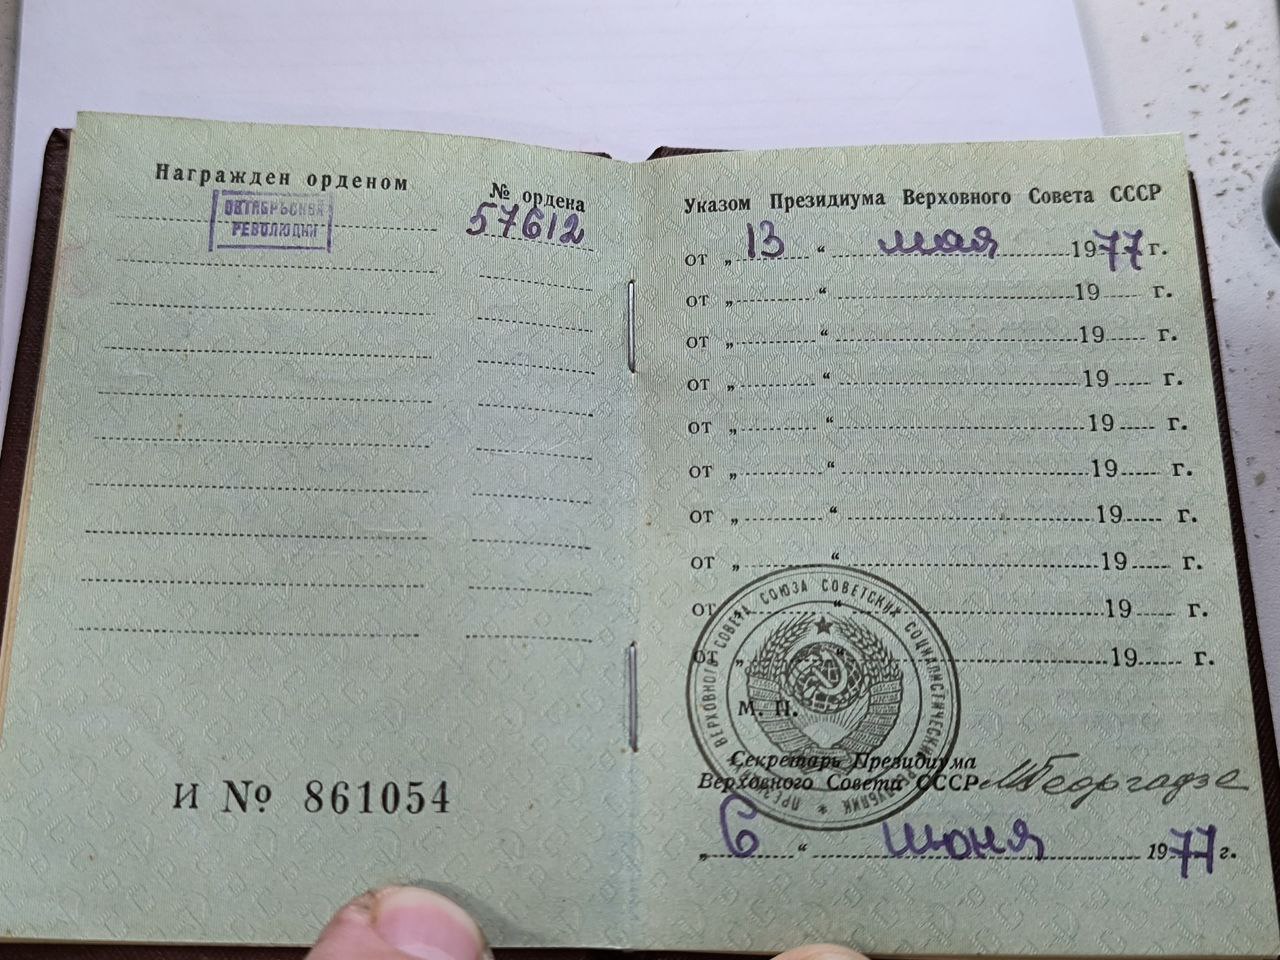 Награжден орденом
№ ордена
ОКТЯБРЬСКОЙ
РЕВОЛЮЦИИ
57612
И № 861054
Указом Президиума Верховного Совета СССР
от „ 13 “ мая 1977 г.
от „ “ 19 г.
от „ “ 19 г.
от „ “ 19 г.
от „ “ 19 г.
от „ “ 19 г.
от „ “ 19 г.
от „ “ 19 г.
от „ “ 19 г.
от „ “ 19 г.
ПРЕЗИДИУМ ВЕРХОВНОГО СОВЕТА СОЮЗА СОВЕТСКИХ СОЦИАЛИСТИЧЕСКИХ РЕСПУБЛИК *
М. П.
Секретарь Президиума
Верховного Совета СССР МГеоргадзе
„ 6 “ июня 1977 г.